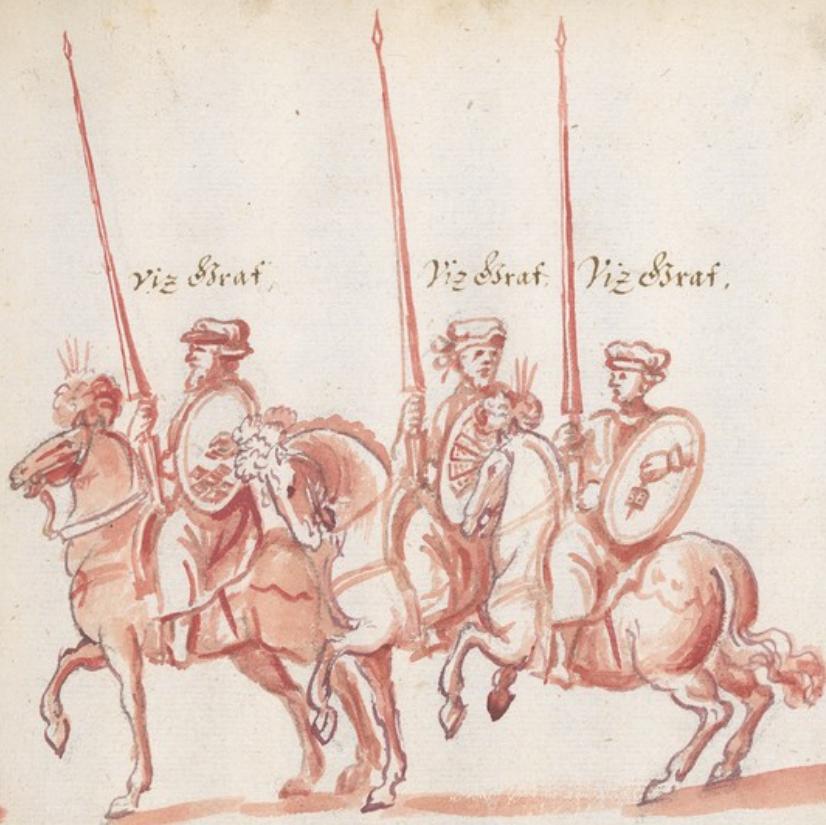 Viz Graf,
Viz Graf.
Viz Graf.